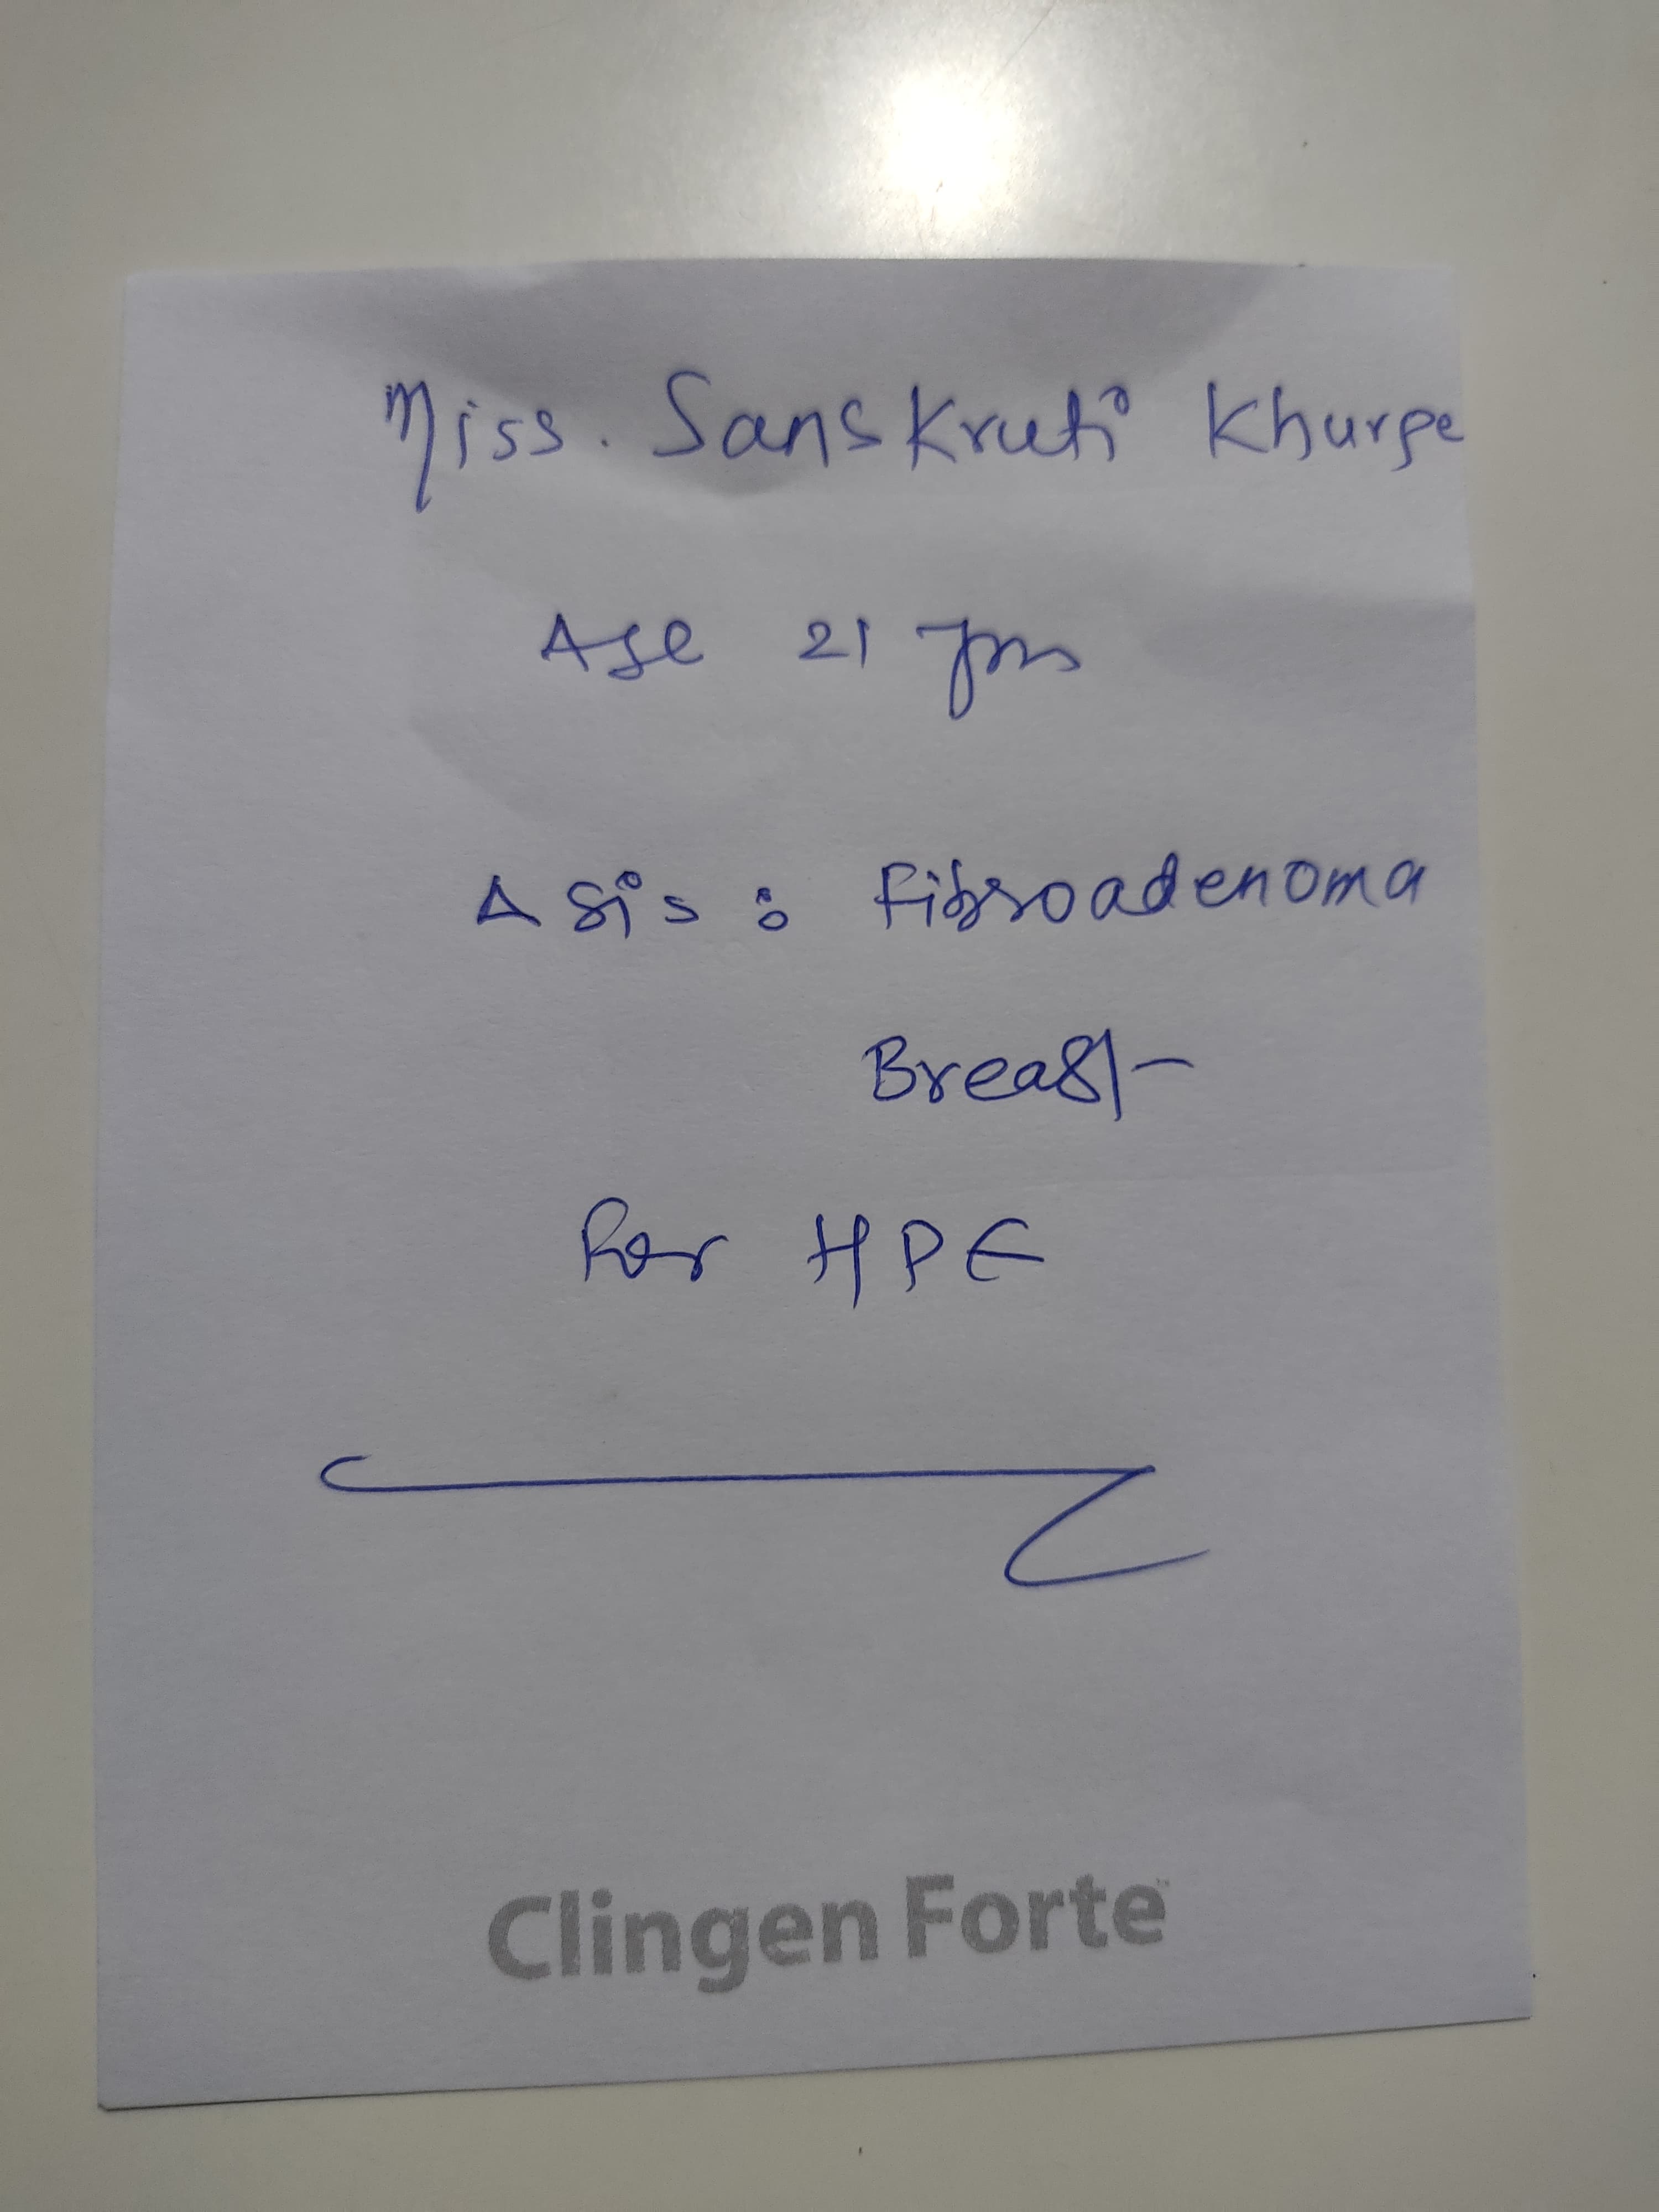 Miss. Sanskruti Khurpe
Age 21 yrs
Δ sis : Fibroadenoma
Breast
For HPE
Clingen Forte